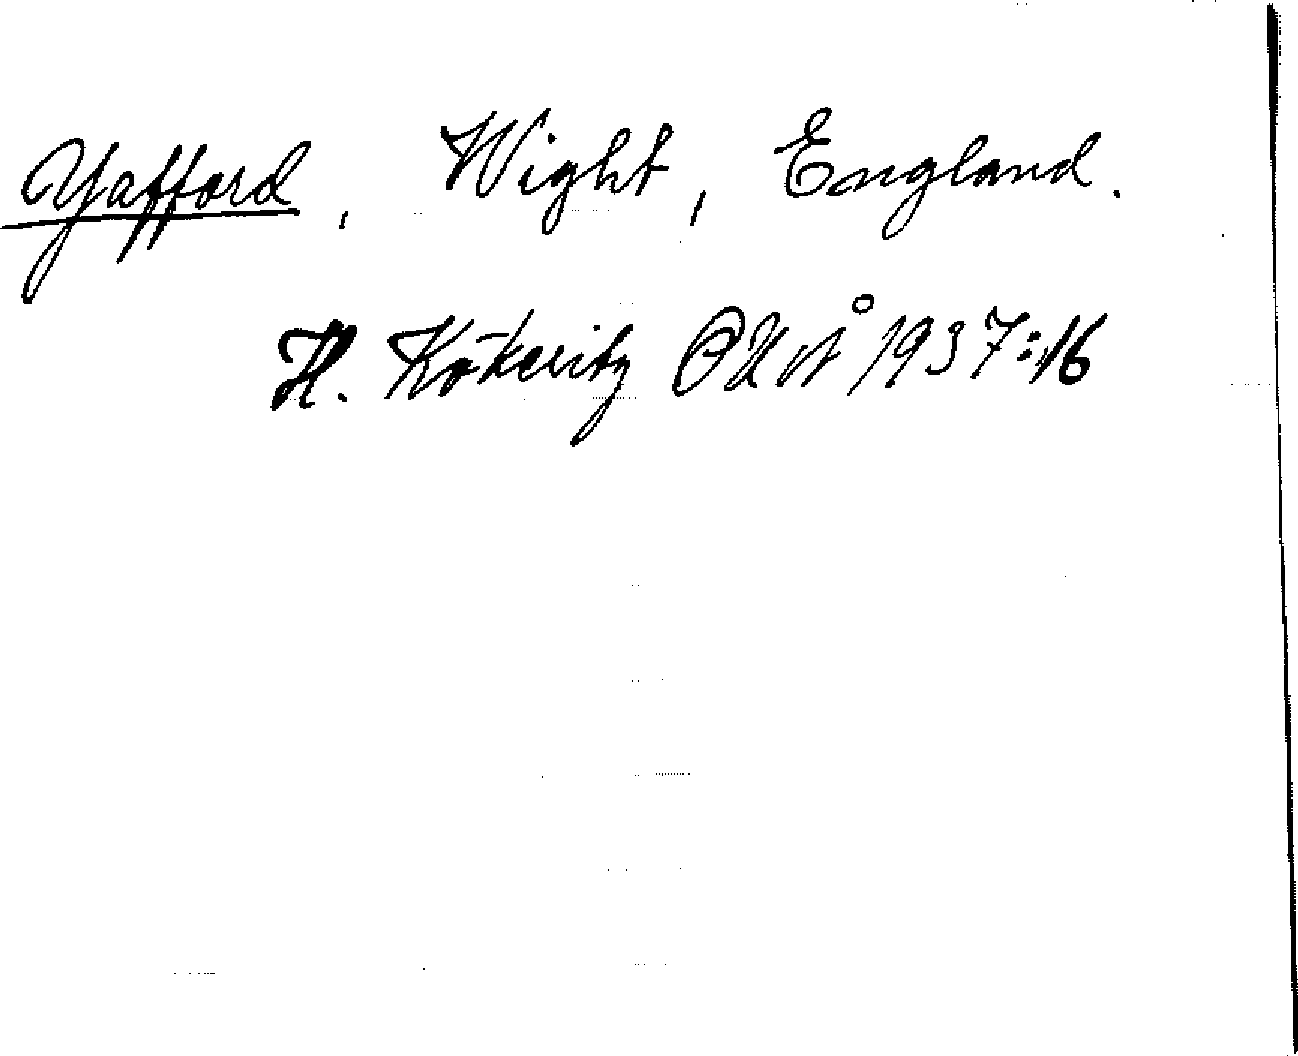 Yafford, Wight, England.
H. Kökeritz OUÅ 1937:16